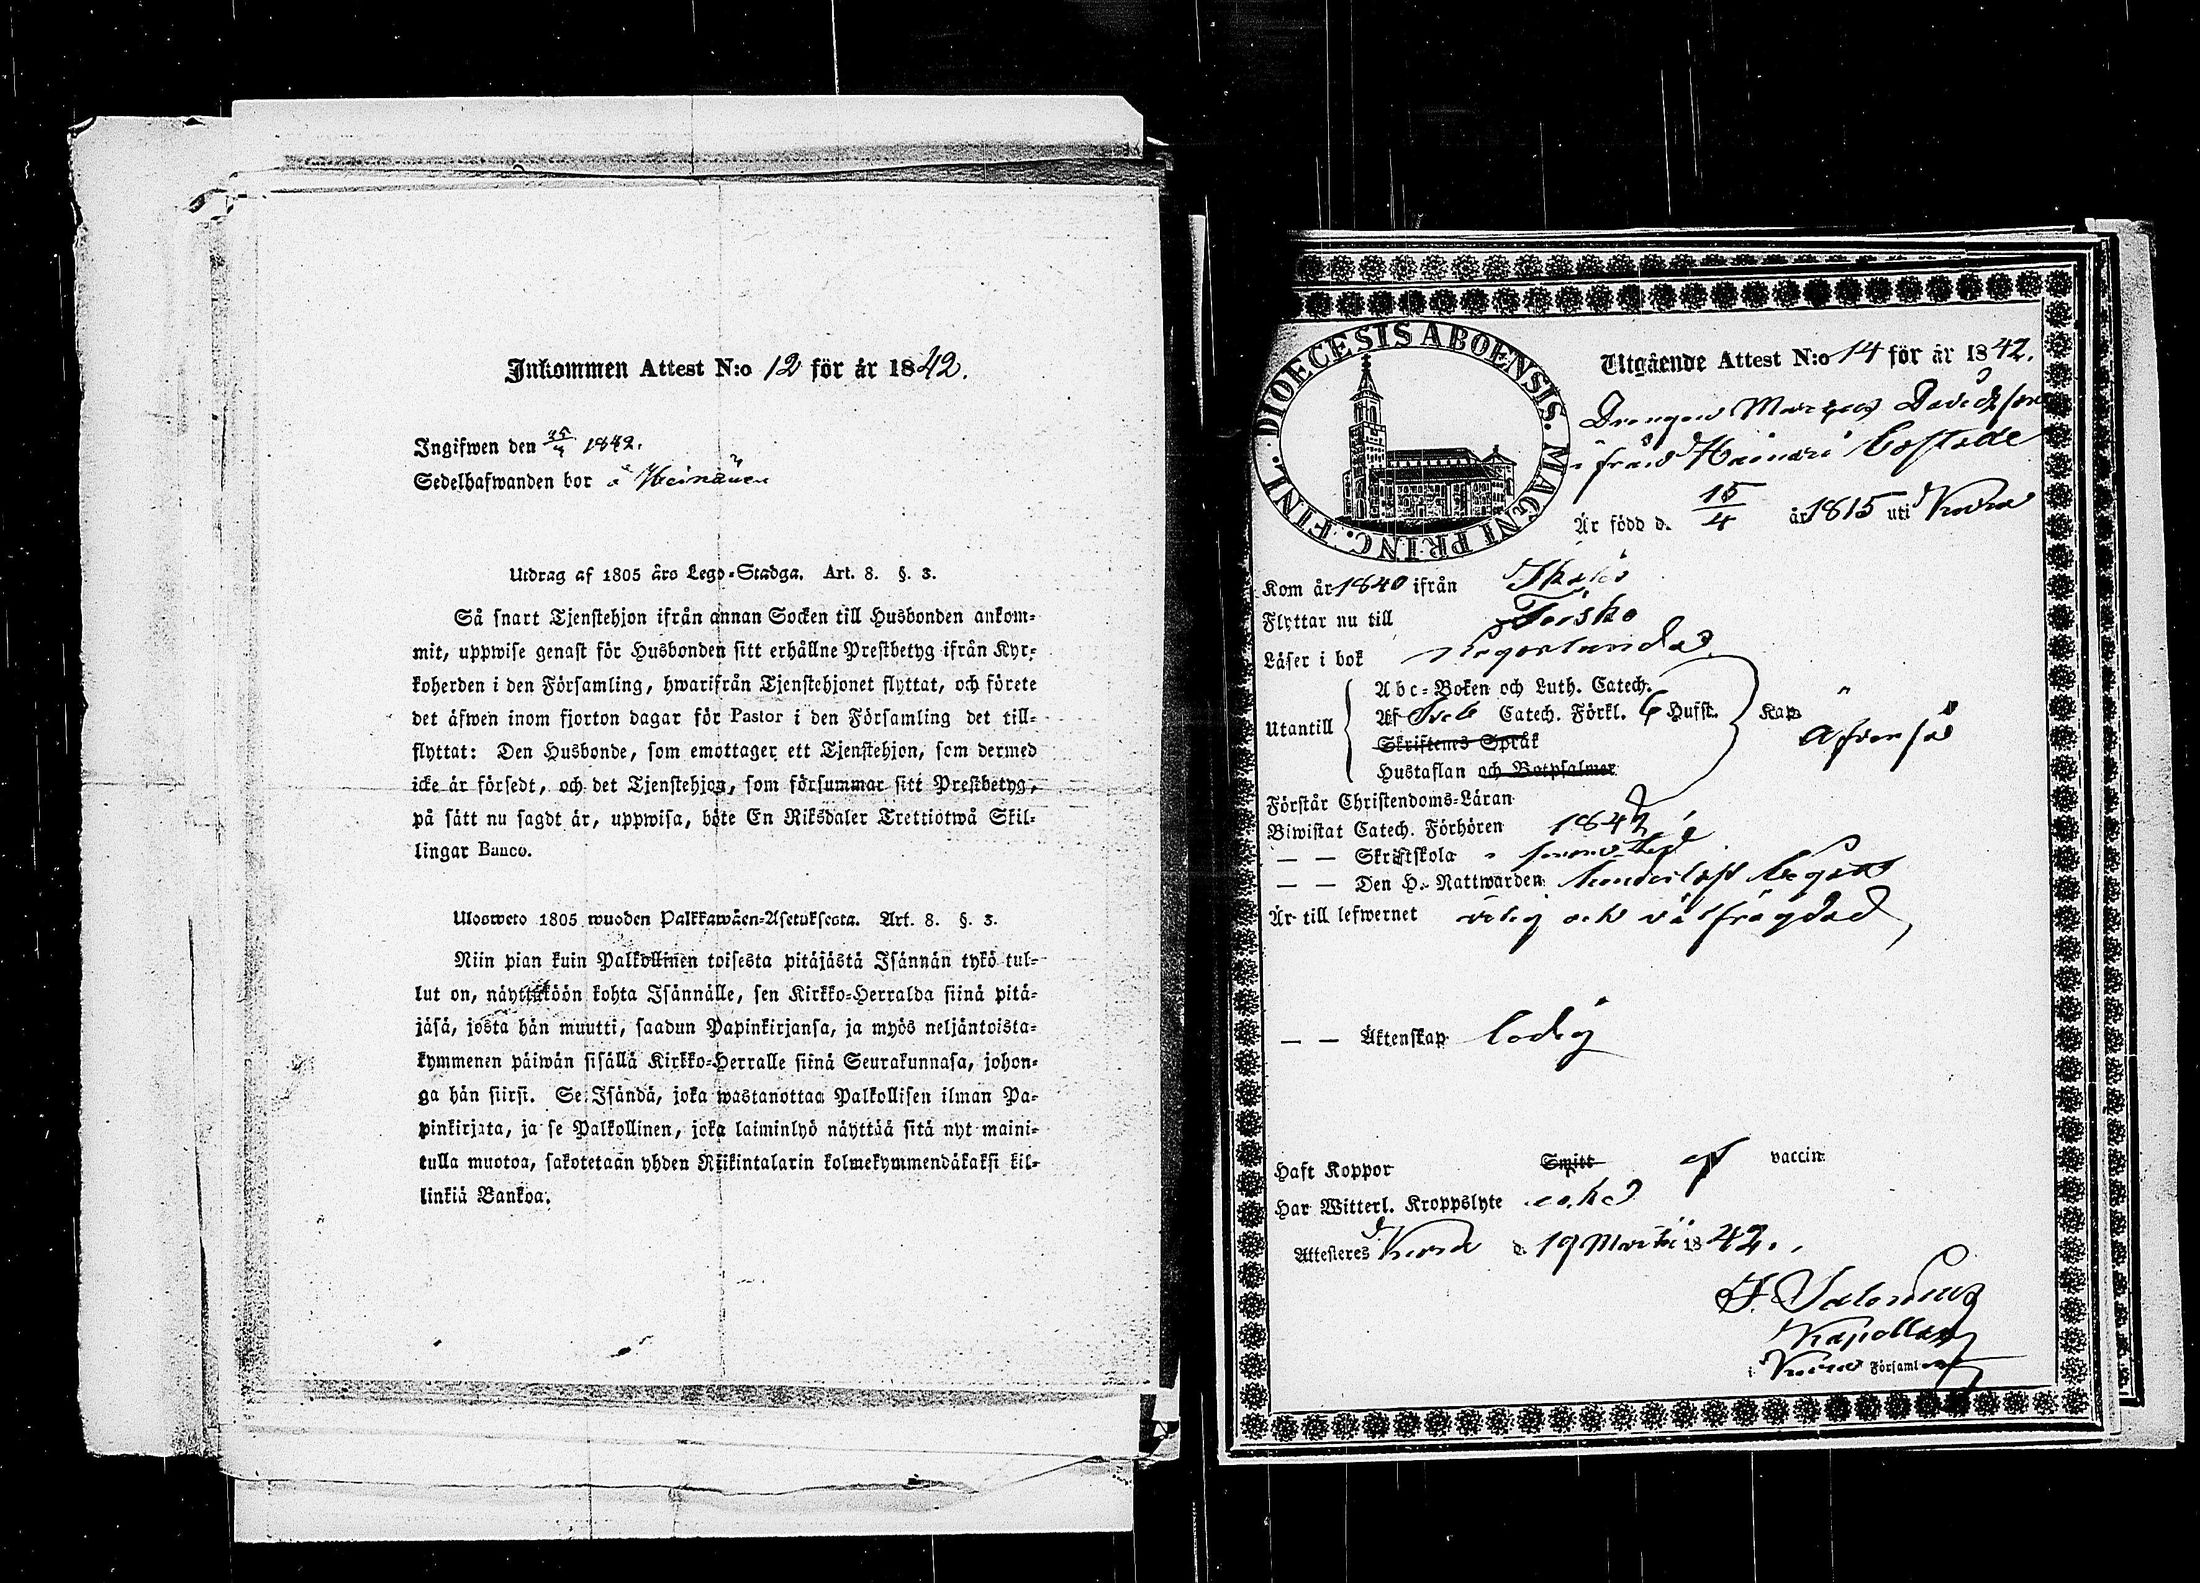 Inkommen Attest N:o 12 för år 1842.
Ingifwen den 25/4 1842.
Sedelhafwanden bor å Heinäuen
Utdrag af 1805 års Lego-Stadga. Art. 8. §. 3.
Så snart Tjenstehjon ifrån annan Socken till Husbonden ankom-
mit, uppwise genast för Husbonden sitt erhållne Prestbetyg ifrån Kyr-
koherden i den Församling, hwarifrån Tjenstehjonet flyttat, och förete
det äfwen inom fjorton dagar för Pastor i den Församling det till-
flyttat: Den Husbonde, som emottager ett Tjenstehjon, som dermed
icke är försedt, och det Tjenstehjon, som försummar sitt Prestbetyg,
på sätt nu sagdt är, uppwisa, böte En Riksdaler Trettiotwå Skil-
lingar Banco.
Ulosweto 1805 wuoden Palkkawäen-Asetuksesta. Art. 8. §. 3.
Niin pian kuin Palkollinen toisesta pitäjästä Isännän tykö tul-
lut on, näyttäköön kohta Isännälle, sen Kirkko-Herralda siinä pitä-
jäsä, josta hän muutti, saadun Papinkirjansa, ja myös neljäntoista-
kymmenen päiwän sisällä Kirkko-Herralle siinä Seurakunnasa, johon-
ga hän siirsi. Se Isändä, joka wastanottaa Palkollisen ilman Pa-
pinkirjata, ja se Palkollinen, joka laiminlyö näyttää sitä nyt maini-
tulla muotoa, sakotetaan yhden Riikintalarin kolmekymmendäkaksi kil-
linkiä Bankoa.
DIOECESIS ABOENSIS. MAGNI PRINC. FINL.
Utgående Attest N:o 14 för år 1842.
Drengen Davidsson
ifrån
Är född d. 15/4 år 1815 uti
Kom år 1840 ifrån
Flyttar nu till Töfsko
Läser i bok
Utantill
Abc-Boken och Luth. Catech.
Af Sveb Catech. Förkl. 6 Hufst.
Skriftenes Språk
Hustaflan och Botpsalmer
Kap
Äfvenså
Förstår Christendoms-Läran
Biwistat Catech. Förhören 1842
— — Skriftskola
— — Den H. Nattwarden begått
Är till lefwernet ärlig och välfrägdad
— — Äktenskap ledig
Haft Koppor Smitt af vaccin.
Har Witterl. Kroppslyte
Attesteres d. 19 Martii 1842.
Kapellan
i Församl